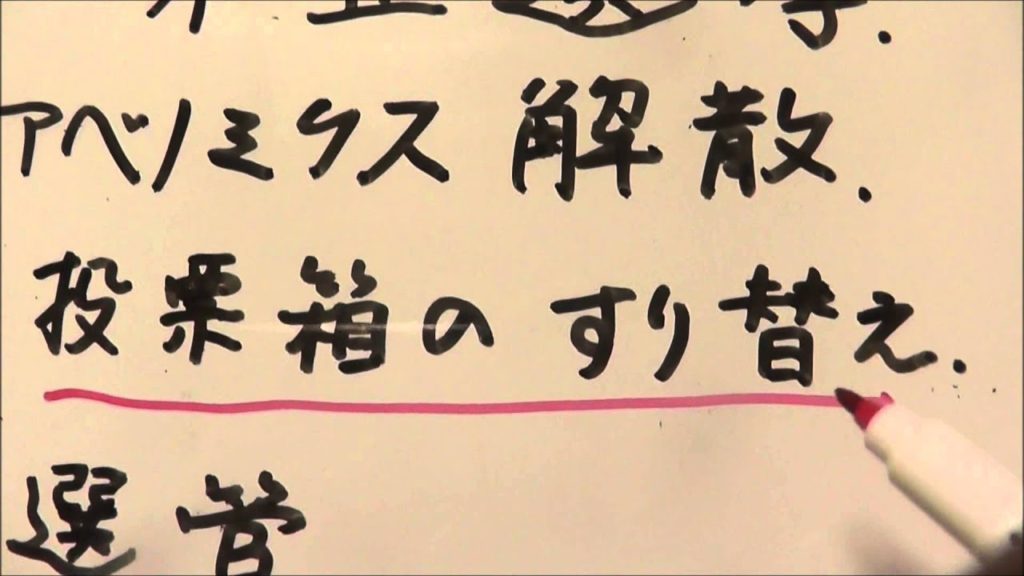 アベノミクス 解散.
投票箱の すり替え.
選管